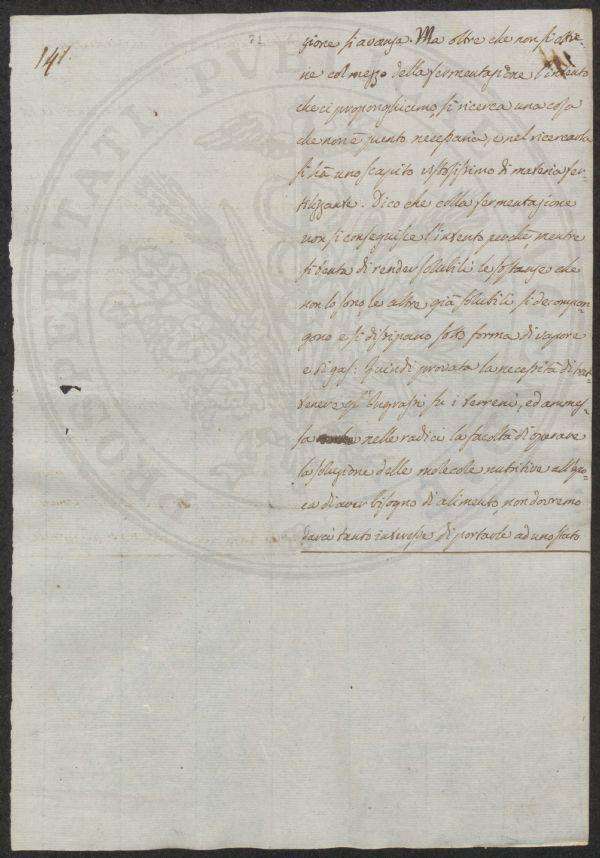 141.
71
gione si avanza. Ma oltre che non si ottie-
ne col mezzo della fermentazione l'intento
che ci proponghiamo, si ricerca una cosa
che non è punto necessaria, e nel ricercarla
si hà uno scapito vistosissimo di materia fer-
tilizzante. Dico che colla fermentazione
non si conseguisce l'intento perchè, mentre
si tenta di render solubili le sostanze che
non lo sono, le altre già solubili si decompon-
gono e si dissipano sotto forma di vapore
e di gas: Quindi provata la necessità di
tenere gl'Ingrassi su i terreni, ed ammes-
sa nelle radici la facoltà di operare
la soluzione delle molecole nutritive all'epo-
ca di aver bisogno di alimento, non dovremo
darci tanto interesse di portarle ad uno stato
PROSPERITATI PUBLICAE